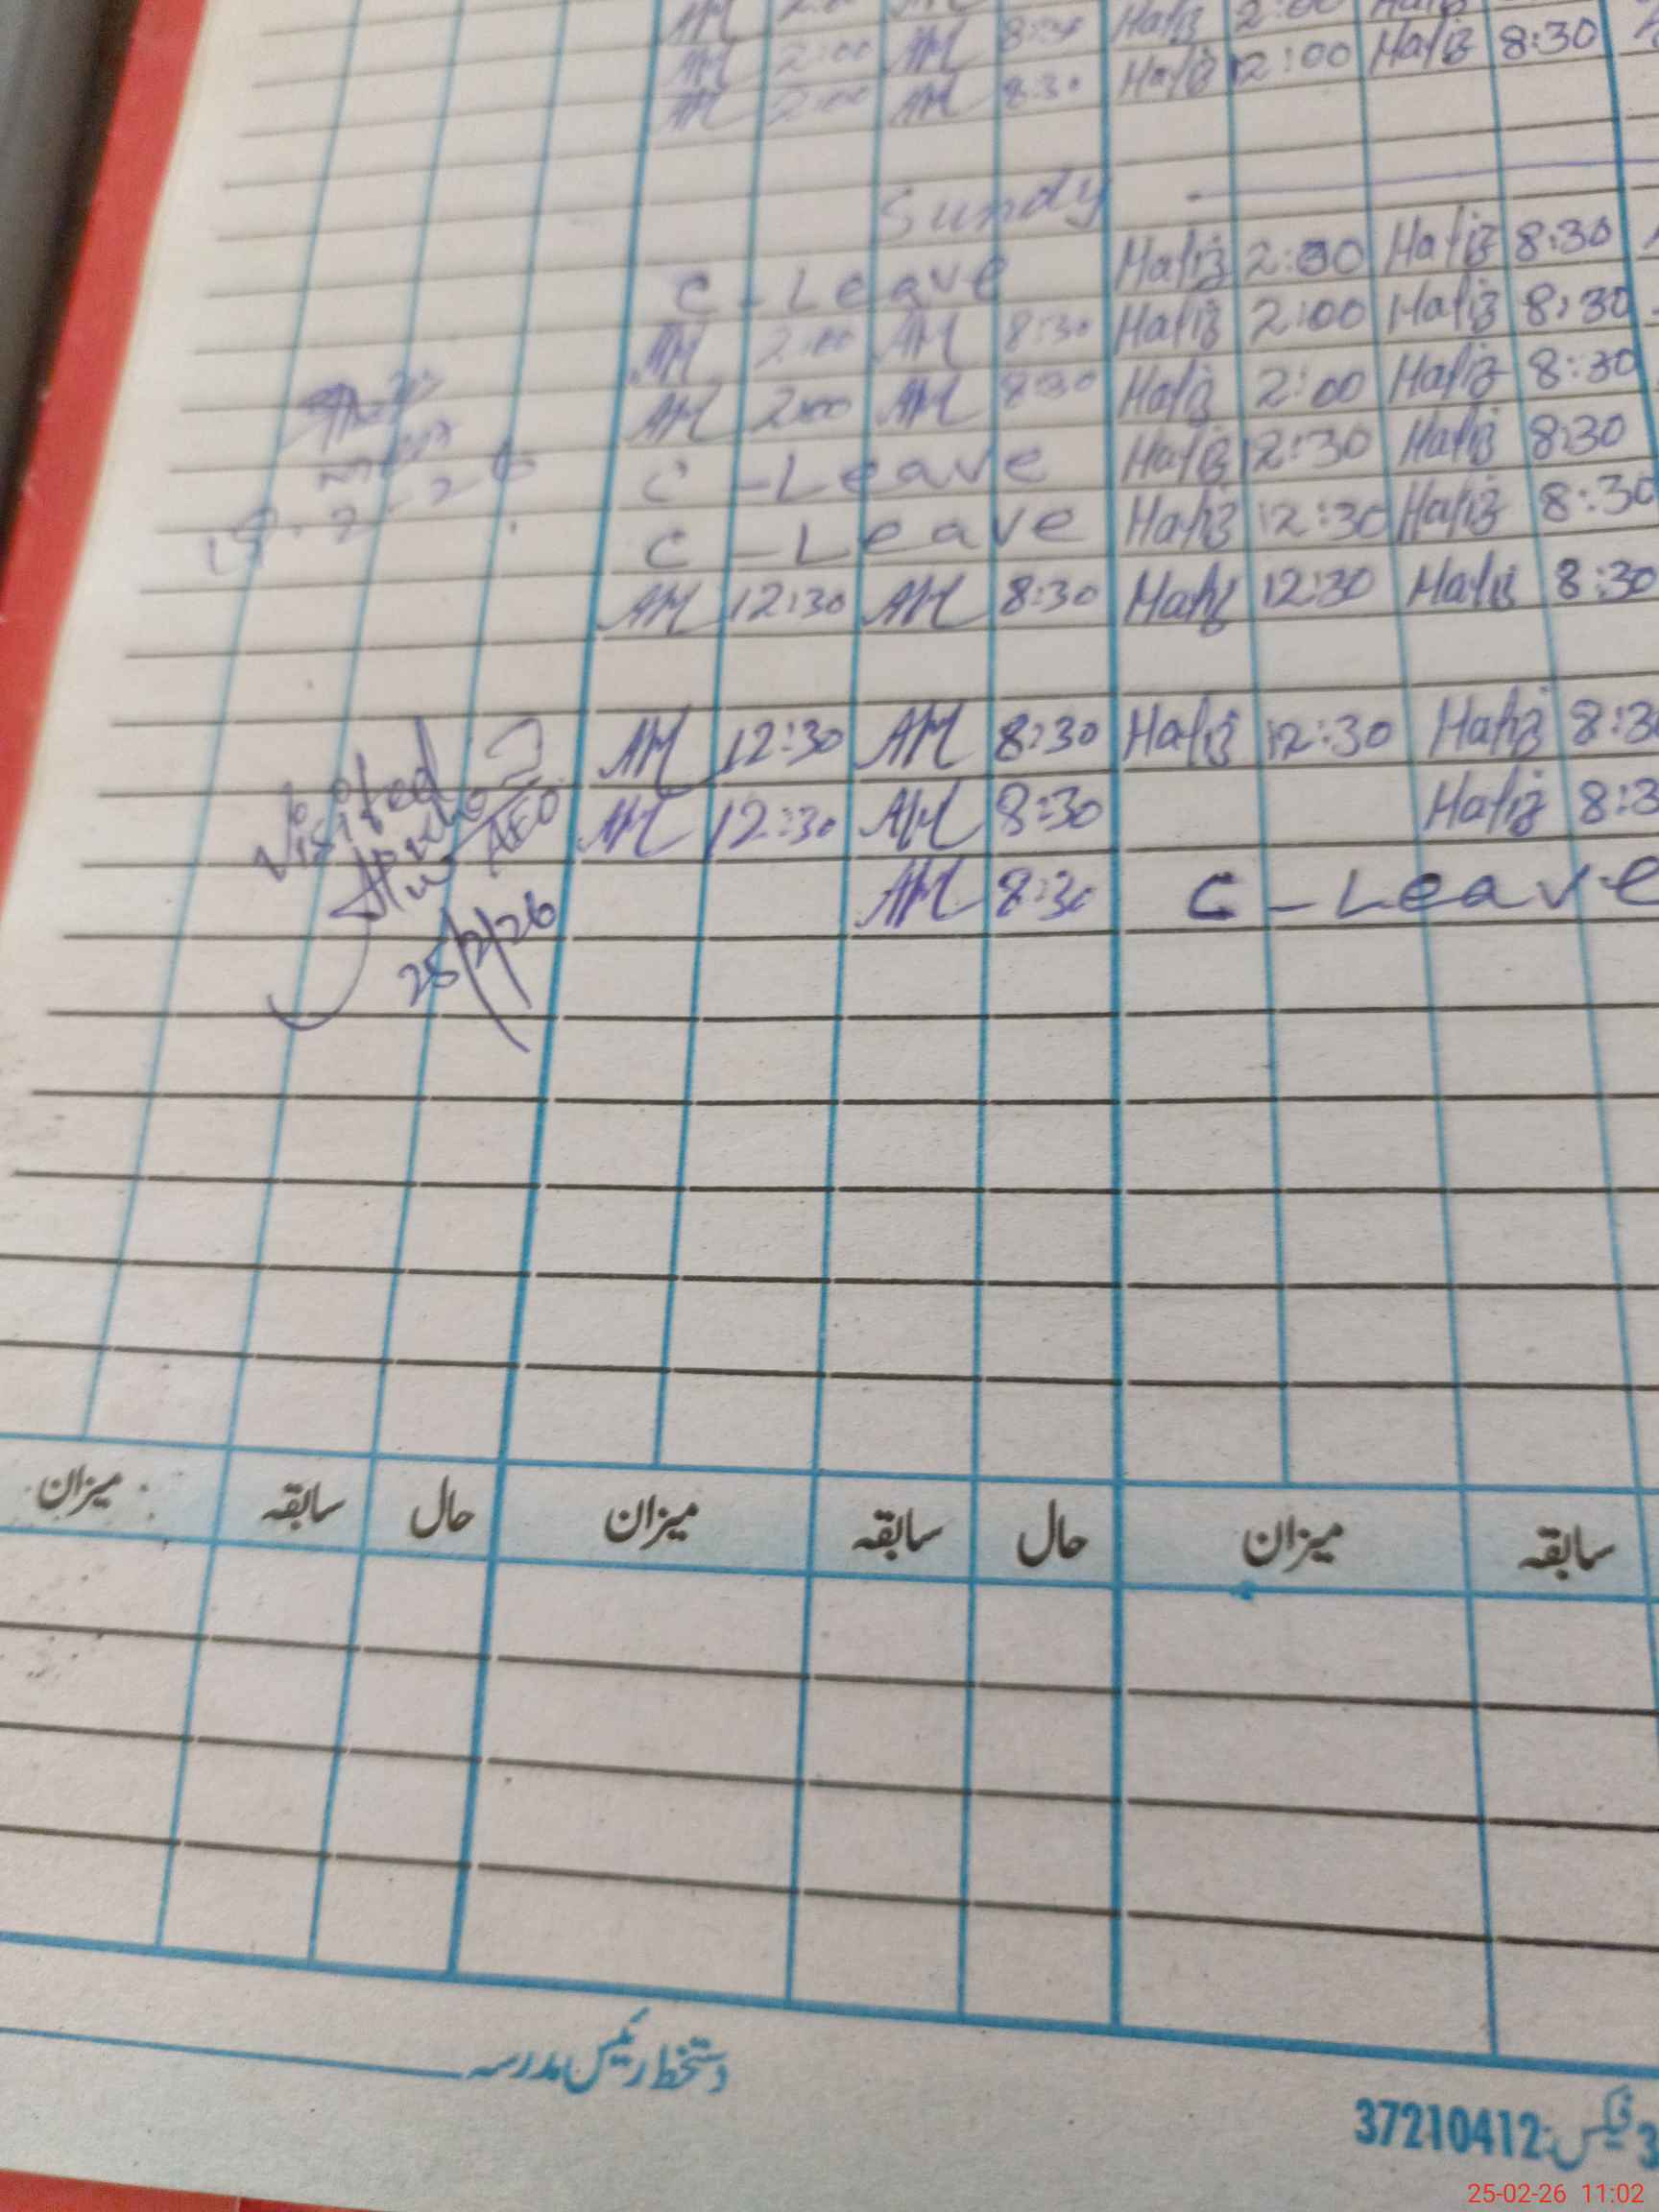 AM 2:00 AM 8:30 Hafiz 2:00 Hafiz 8:30
AM 2:00 AM 8:30 Hafiz 12:00 Hafiz 8:30
Sundy
C-Leave Hafiz 2:00 Hafiz 8:30
AM 2:00 AM 8:30 Hafiz 2:00 Hafiz 8:30
AM 2:00 AM 8:30 Hafiz 2:00 Hafiz 8:30
C-Leave Hafiz 12:30 Hafiz 8:30
C-Leave Hafiz 12:30 Hafiz 8:30
AM 12:30 AM 8:30 Hafiz 12:30 Hafiz 8:30
AM 12:30 AM 8:30 Hafiz 12:30 Hafiz 8:3
AM 12:30 AM 8:30 Hafiz 8:3
AM 8:30 C-Leave
Visited
AEO
25/2/26
میزان سابقہ حال میزان سابقہ حال میزان سابقہ
دستخط رئیس مدرسہ
فیکس:37210412
25-02-26 11:02